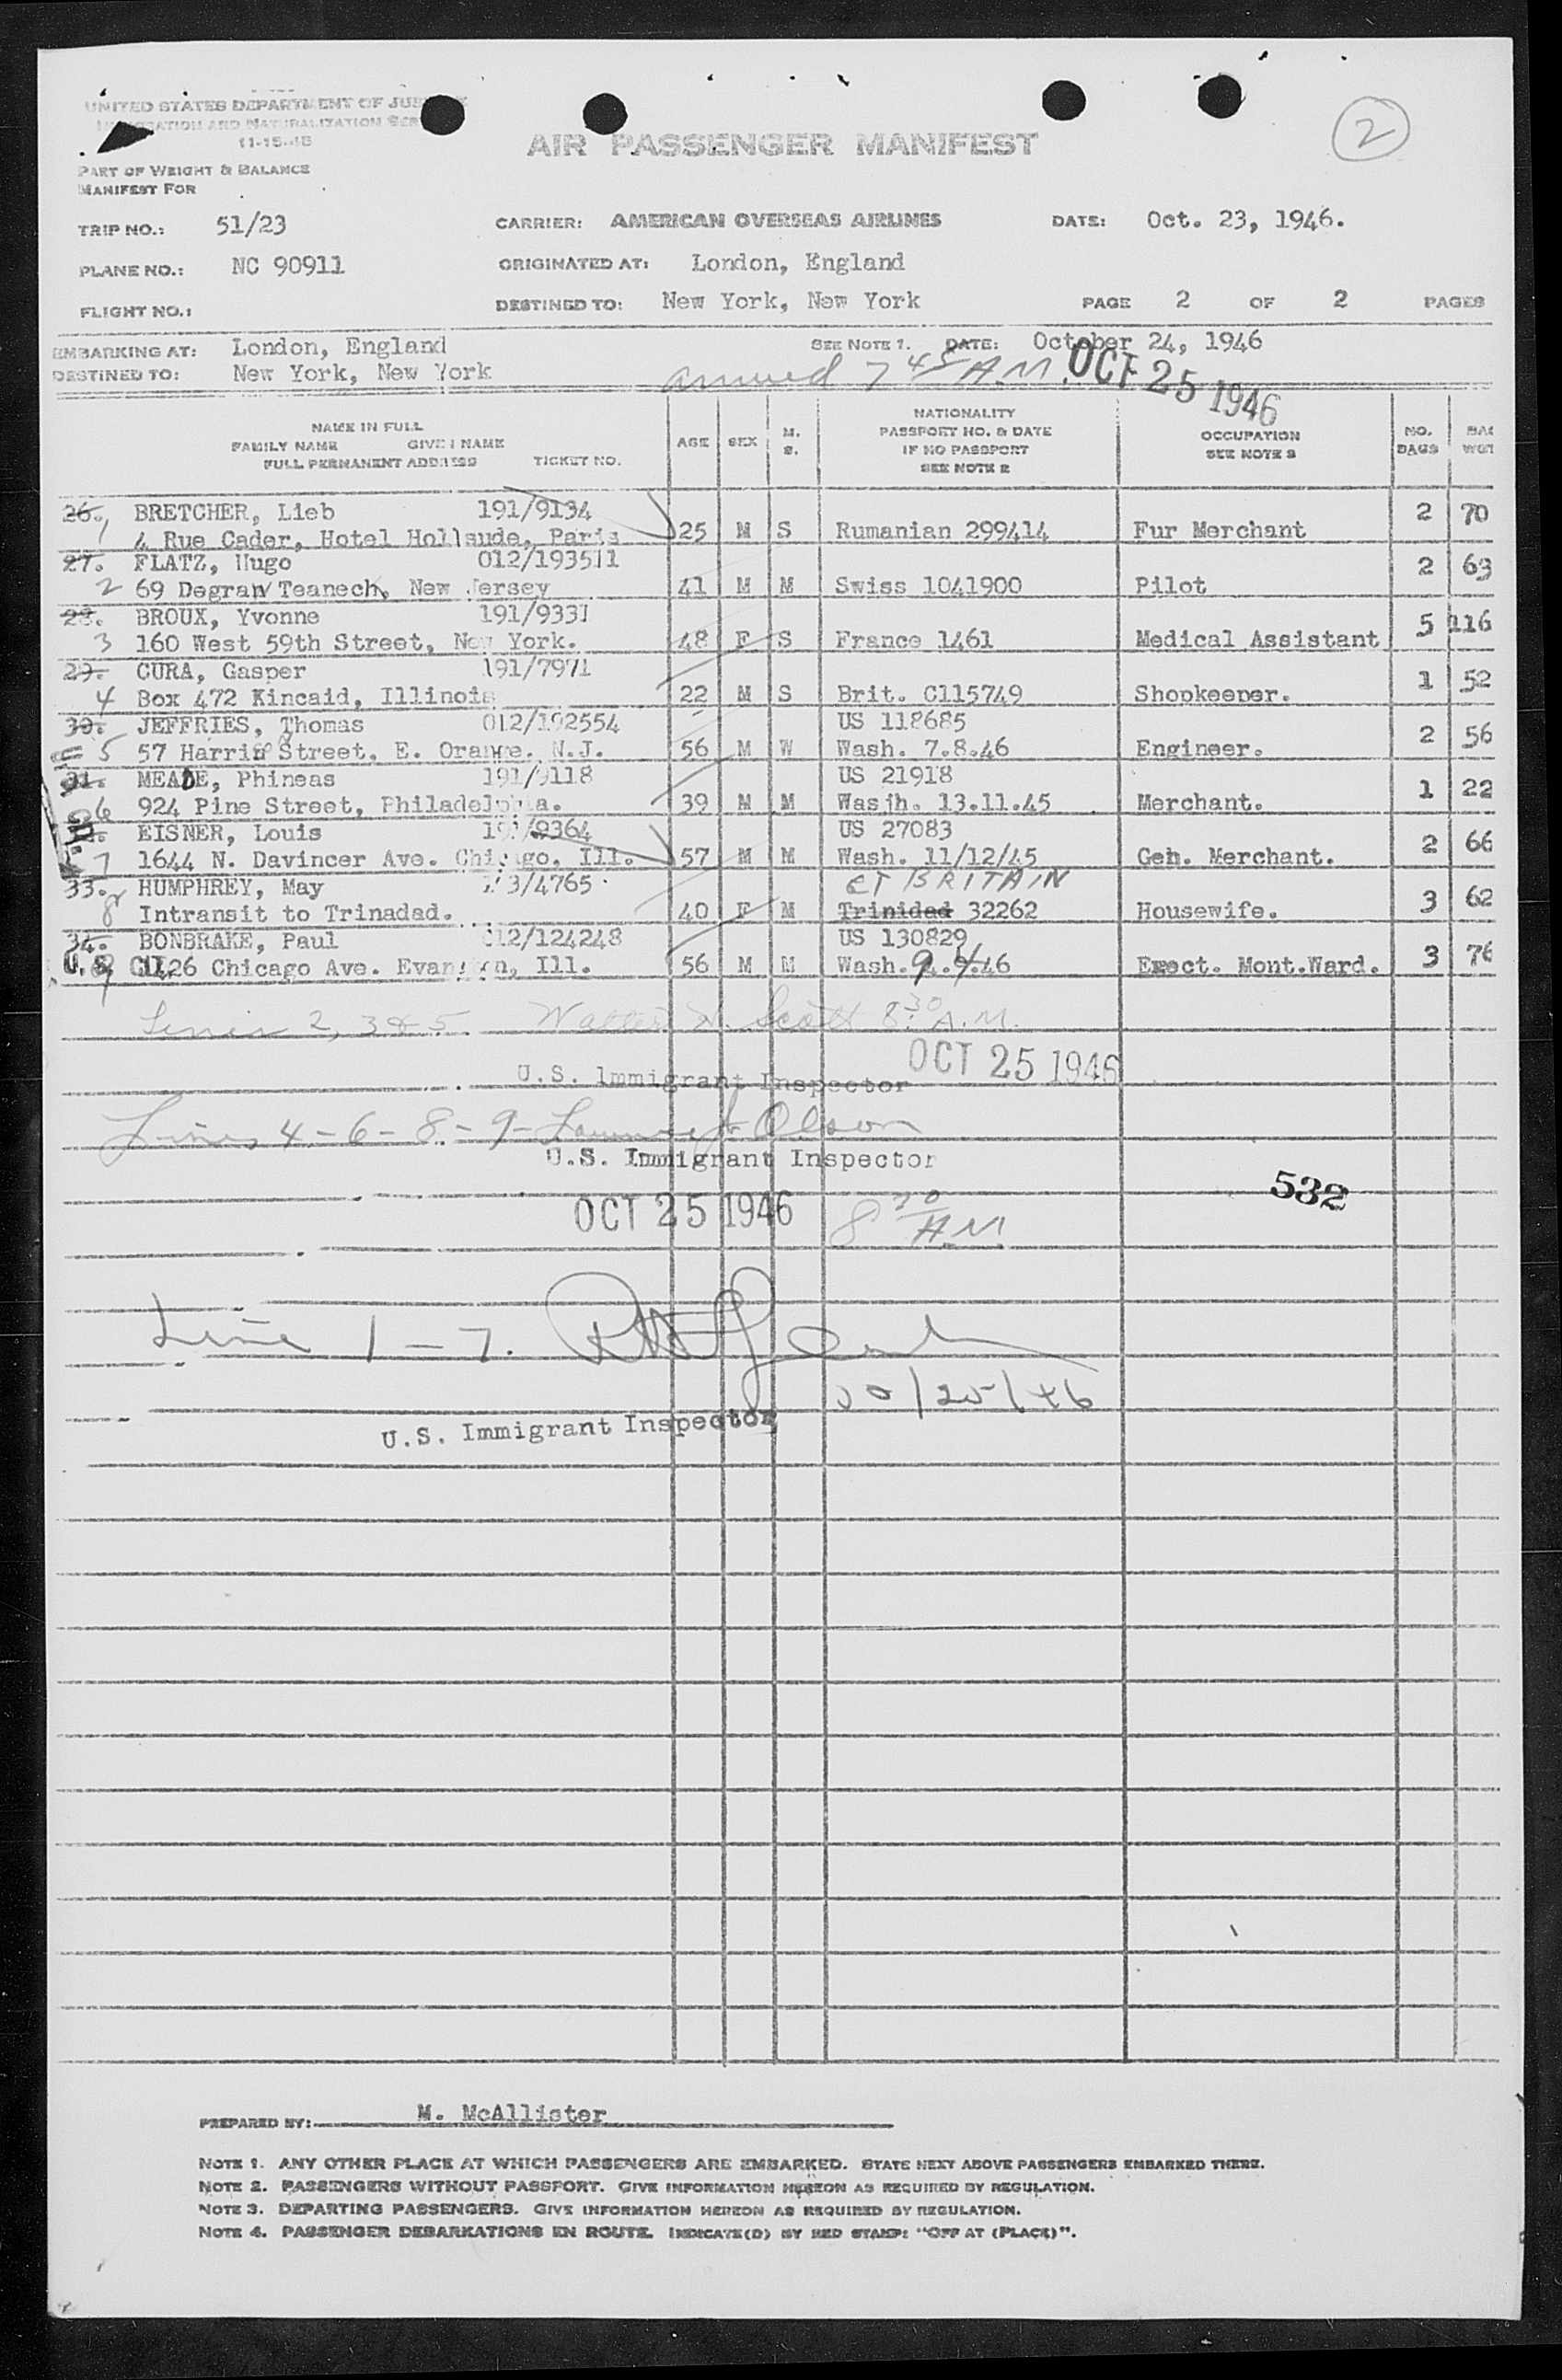 UNITED STATES DEPARTMENT OF
AND NATURALIZATION
11-15-45
AIR PASSENGER MANIFEST
2
PART OF WEIGHT & BALANCE
MANIFEST FOR
TRIP NO.: 51/23 CARRIER: AMERICAN OVERSEAS AIRLINES DATE: Oct. 23, 1946.
PLANE NO.: NC 90911 ORIGINATED AT: London, England
FLIGHT NO.: DESTINED TO: New York, New York PAGE 2 OF 2 PAGES
EMBARKING AT: London, England SEE NOTE 1. DATE: October 24, 1946
DESTINED TO: New York, New York arrived 7 45 A.M. OCT 25 1946
NAME IN FULL
FAMILY NAME GIVEN NAME
FULL PERMANENT ADDRESS TICKET NO.
AGE SEX M. S.
NATIONALITY
PASSPORT NO. & DATE
IF NO PASSPORT
SEE NOTE 2
OCCUPATION
SEE NOTE 3
NO. BAGS
26. BRETCHER, Lieb 191/9134 2 70
1 4 Rue Cader, Hotel Hollaude, Paris 25 M S Rumanian 299414 Fur Merchant
27. FLATZ, Hugo 012/193511 2 63
2 69 Degraw Teaneck, New Jersey 41 M M Swiss 1041900 Pilot
28. BROUX, Yvonne 191/9331 5 116
3 160 West 59th Street, New York. 48 F S France 1461 Medical Assistant
29. CURA, Gasper 191/7971 1 52
4 Box 472 Kincaid, Illinois 22 M S Brit. C115749 Shopkeeper.
30. JEFFRIES, Thomas 012/192554 US 118685 2 56
5 57 Harris Street, E. Orange. N.J. 56 M W Wash. 7.8.46 Engineer.
31. MEADE, Phineas 191/9118 US 21918 1 22
6 924 Pine Street, Philadelphia. 39 M M Wasjh. 13.11.45 Merchant.
EISNER, Louis 191/9364 US 27083 2 66
7 1644 N. Davincer Ave. Chicago, Ill. 57 M M Wash. 11/12/45 Geh. Merchant.
33. HUMPHREY, May 3/4765 GT BRITAIN 3 62
8 Intransit to Trinadad. 40 F M Trinidad 32262 Housewife.
34. BONBRAKE, Paul 012/124248 US 130829 3 76
U.S. 9 1126 Chicago Ave. Evanston, Ill. 56 M M Wash. 9.4.46 Exect. Mont.Ward.
Lines 2, 3 & 5 Walter N. Scott 8:30 A.M.
OCT 25 1946
U.S. Immigrant Inspector
Lines 4-6-8-9- Olson
U.S. Immigrant Inspector
532
OCT 25 1946 8 30 A.M.
Line 1-7.
10/25/46
U.S. Immigrant Inspector
PREPARED BY: M. McAllister
NOTE 1. ANY OTHER PLACE AT WHICH PASSENGERS ARE EMBARKED. STATE NEXT ABOVE PASSENGERS EMBARKED THERE.
NOTE 2. PASSENGERS WITHOUT PASSPORT. GIVE INFORMATION HEREON AS REQUIRED BY REGULATION.
NOTE 3. DEPARTING PASSENGERS. GIVE INFORMATION HEREON AS REQUIRED BY REGULATION.
NOTE 4. PASSENGER DEBARKATIONS EN ROUTE. INDICATE(D) BY RED STAMP: "OFF AT (PLACE)".